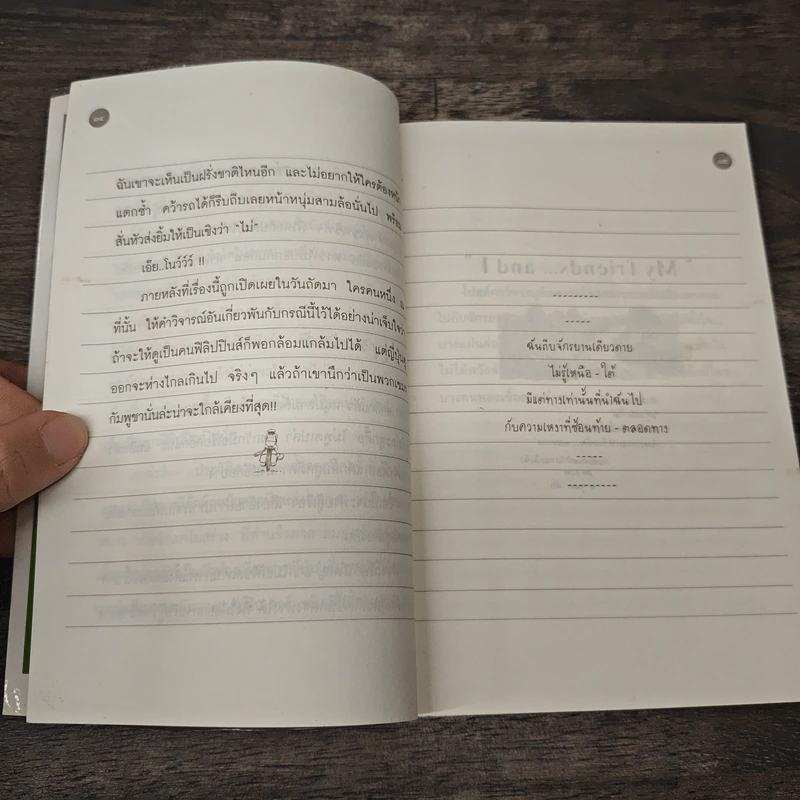 ฉันเขาจะเห็นเป็นฝรั่งชาติไหนอีก และไม่อยากให้ใครต้อง
แตกซ้ำ คว้ารถได้ก็รีบถีบเลยหน้าหนุ่มสามล้อนั่นไป
สั่นหัวส่งยิ้มให้เป็นเชิงว่า "ไม่"
เอ๊ย..โนว์ว์ว์ !!
ภายหลังที่เรื่องนี้ถูกเปิดเผยในวันถัดมา ใครคนหนึ่ง ณ
ที่นั้น ให้คำวิจารณ์อันเกี่ยวพันกับกรณีนี้ไว้ได้อย่างน่าเจ็บใจว่า
ถ้าจะให้ดูเป็นคนฟิลิปปินส์ก็พอกล้อมแกล้มไปได้ แต่ญี่ปุ่นดู
ออกจะห่างไกลเกินไป จริงๆ แล้วถ้าเขานึกว่าเป็นพวกเขมร
กัมพูชานั่นล่ะน่าจะใกล้เคียงที่สุด!!
"My friends... and I"
---------
-----
ฉันถีบจักรยานเดียวดาย
ไม่รู้เหนือ - ใต้
มีแต่ทางเท่านั้นที่นำฉันไป
กับความเหงาที่ซ้อนท้าย - ตลอดทาง
-----
---------